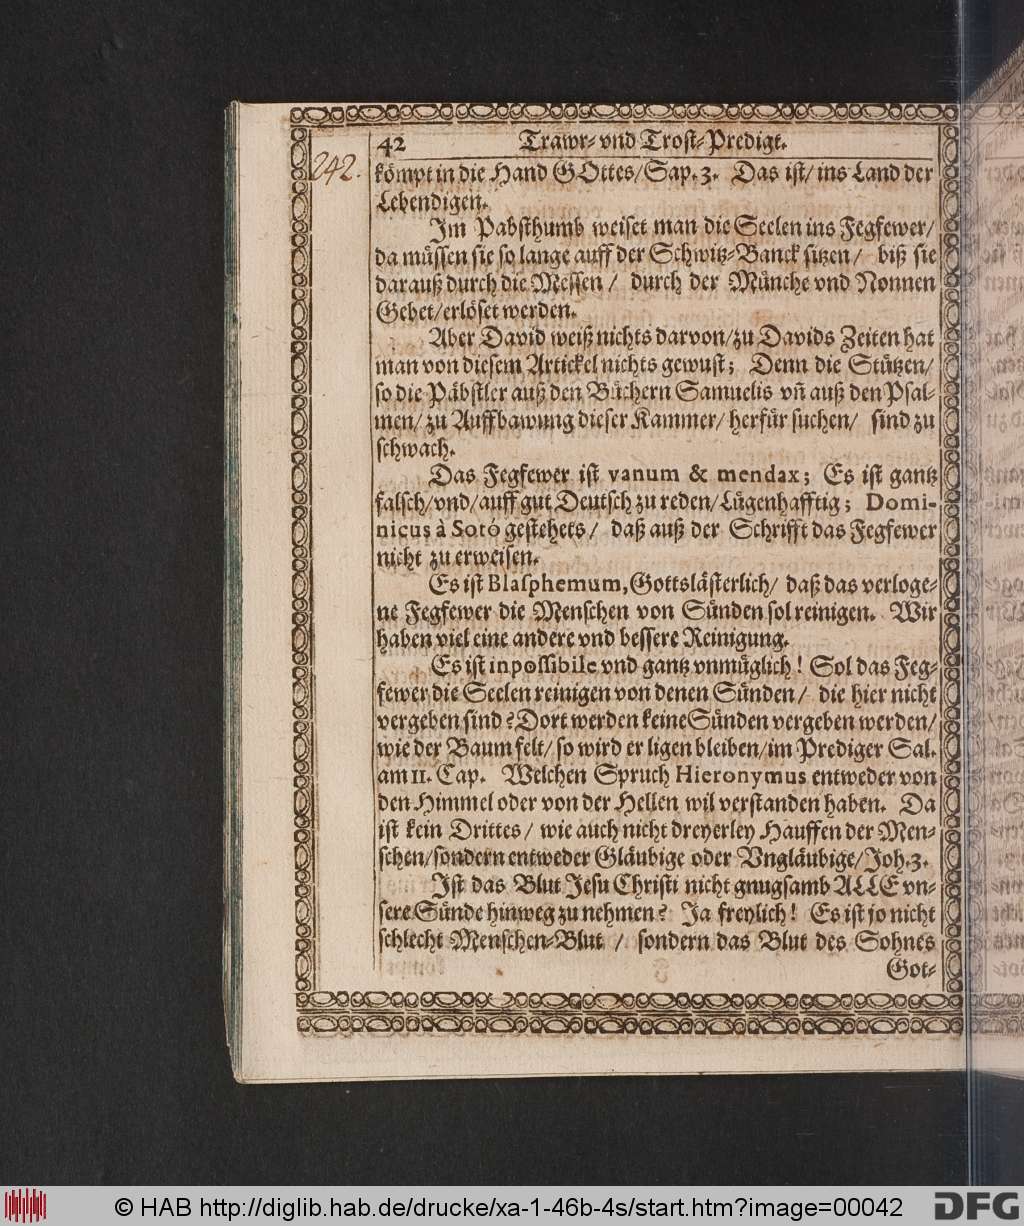 42 Trawr- vnd Trost-Predigt.
242.
kömpt in die Hand GOttes/Sap. 3. Das ist/ ins Land der
Lebendigen.
Im Pabsthumb weiset man die Seelen ins Fegfewer/
da müssen sie so lange auff der Schwitz-Banck sitzen/ biß sie
darauß durch die Messen/ durch der Münche vnd Nonnen
Gebet/erlöset werden.
Aber David weiß nichts darvon/zu Davids Zeiten hat
man von diesem Artickel nichts gewust; Denn die Stützen/
so die Päbstler auß den Büchern Samuelis vñ auß den Psal-
men/ zu Auffbawung dieser Kammer/ herfür suchen/ sind zu
schwach.
Das Fegfewer ist vanum & mendax; Es ist gantz
falsch/vnd/auff gut Deutsch zu reden/Lügenhafftig; Domi-
nicus à Sotó gestehets/ daß auß der Schrifft das Fegfewer
nicht zu erweisen.
Es ist Blasphemum, Gottslästerlich/ daß das verloge-
ne Fegfewer die Menschen von Sünden sol reinigen. Wir
haben viel eine andere vnd bessere Reinigung.
Es ist inpossibile vnd gantz vnmüglich! Sol das Feg-
fewer die Seelen reinigen von denen Sünden/ die hier nicht
vergeben sind? Dort werden keine Sünden vergeben werden/
wie der Baum felt/ so wird er ligen bleiben/im Prediger Sal.
am 11. Cap. Welchen Spruch Hieronymus entweder von
den Himmel oder von der Hellen wil verstanden haben. Da
ist kein Drittes/ wie auch nicht dreyerley Hauffen der Men-
schen/sondern entweder Gläubige oder Vngläubige/Joh. 3.
Ist das Blut Jesu Christi nicht gnugsamb ALLE vn-
sere Sünde hinweg zu nehmen? Ja freylich! Es ist jo nicht
schlecht Menschen-Blut/ sondern das Blut des Sohnes
Got-
© HAB http://diglib.hab.de/drucke/xa-1-46b-4s/start.htm?image=00042
DFG